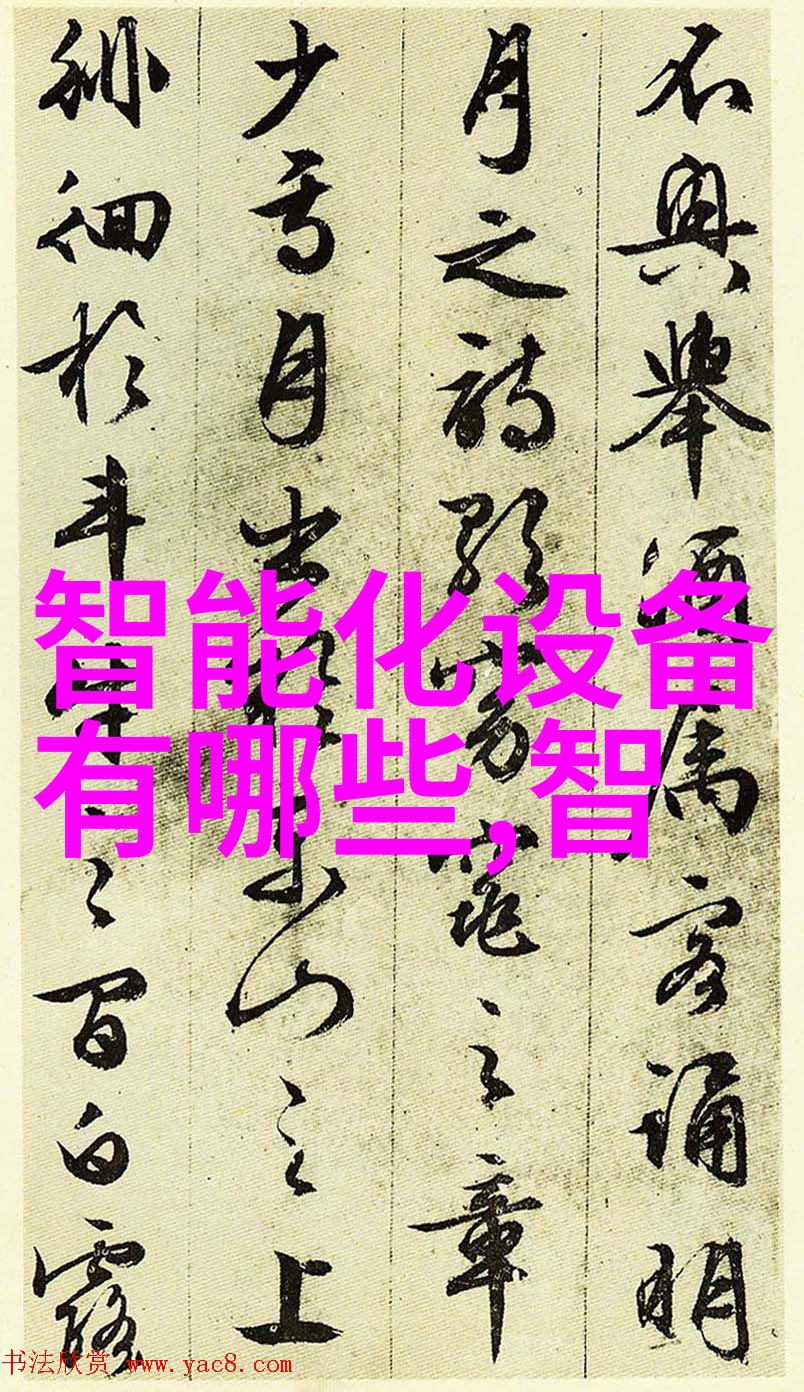 不興舉酒屬客誦明
月之詩歌窈窕之章
少焉月出於東山之上
徘徊於斗牛之間白露
智能化设备
有哪些,智
书法欣赏 www.yac8.com